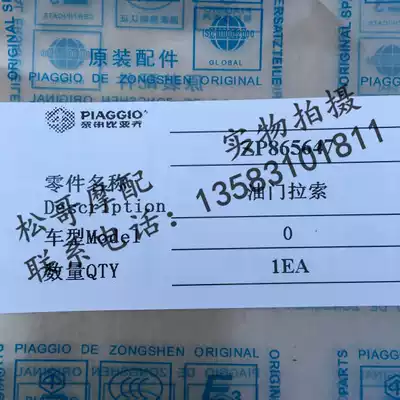 CERTIFICATE
ISO
GLOBAL
ORIGINAL
原装配件
PIAGGIO DE ZONGSHEN
PIAGGIO
宗申比亚乔
ZP865647
零件名称
Description
油门拉索
车型Model
0
数量QTY
1EA
实物拍摄
松哥摩配
联系电话：13583101811
PIAGGIO DE ZONGSHEN ORIGINAL
PARTS